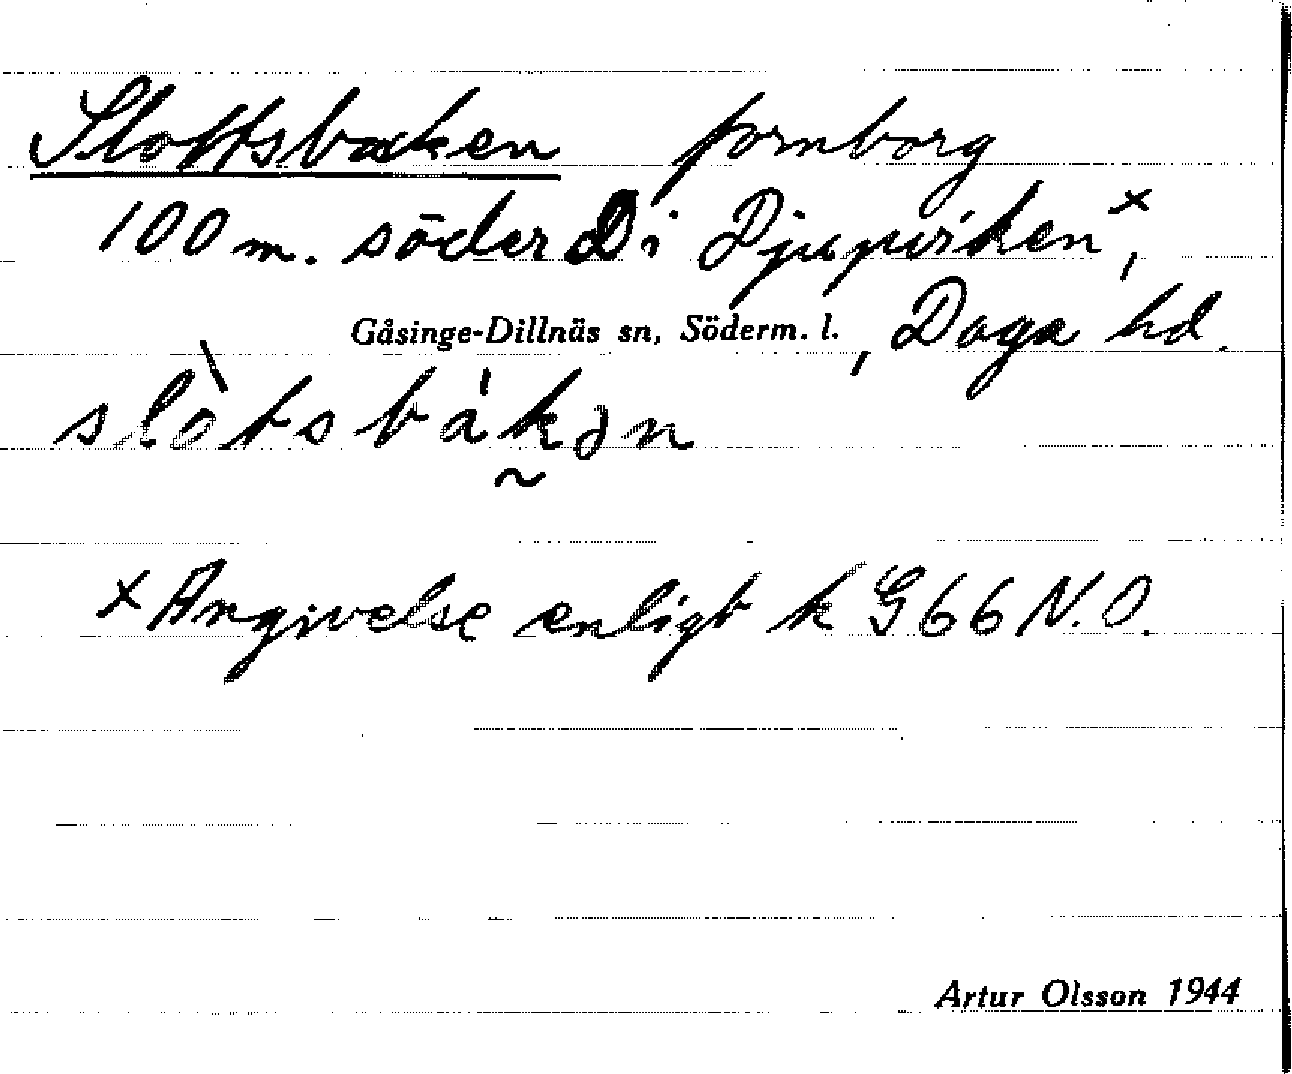 Slottsbacken fornborg
100 m. söder D i Djupviken x,
Gåsinge-Dillnäs sn, Söderm. l., Daga hd.
slòtsbákən
x Angivelse enligt k G 66 N.O.
Artur Olsson 1944